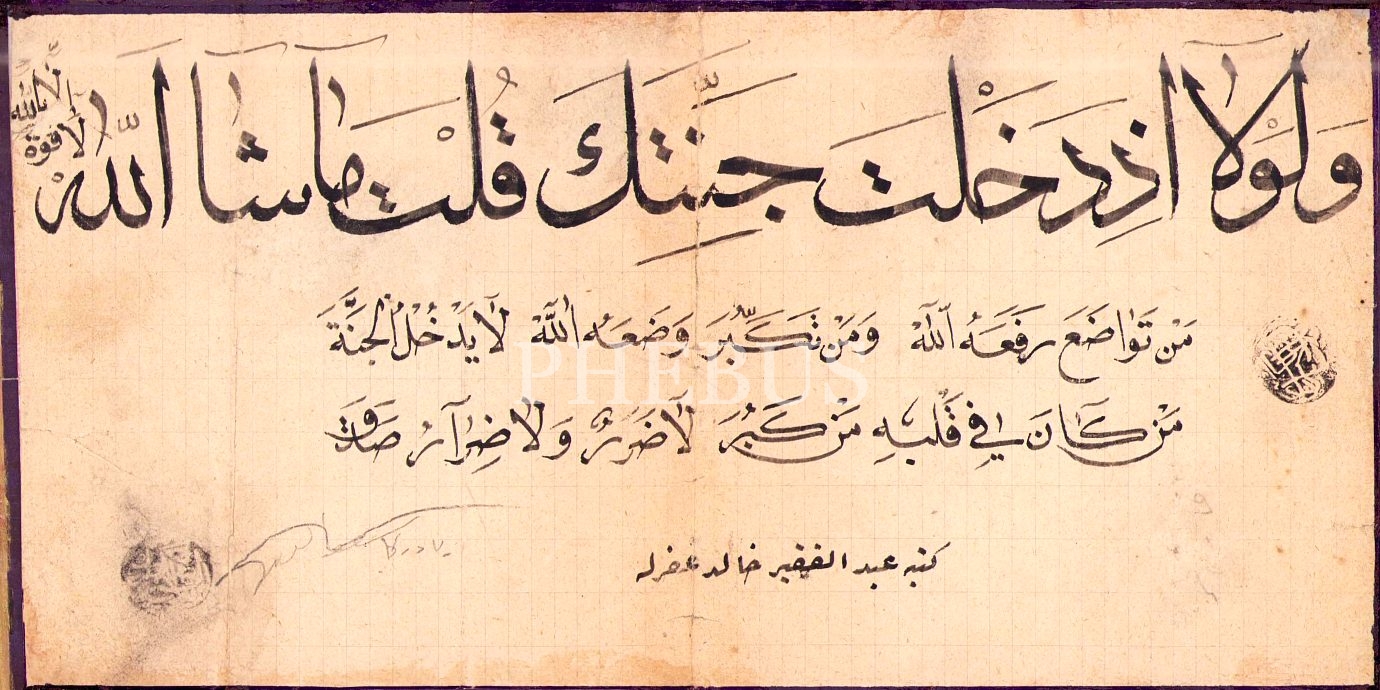 ولولا اذ دخلت جنتك قلت ماشا الله
لا قوة
الا بالله
من تواضع رفعه الله ومن تكبر وضعه الله لا يدخل الجنة
من كان في قلبه من كبر لا ضرر ولا ضرار صدق
كتبه عبد الفقير خالد غفرله
PHEBUS